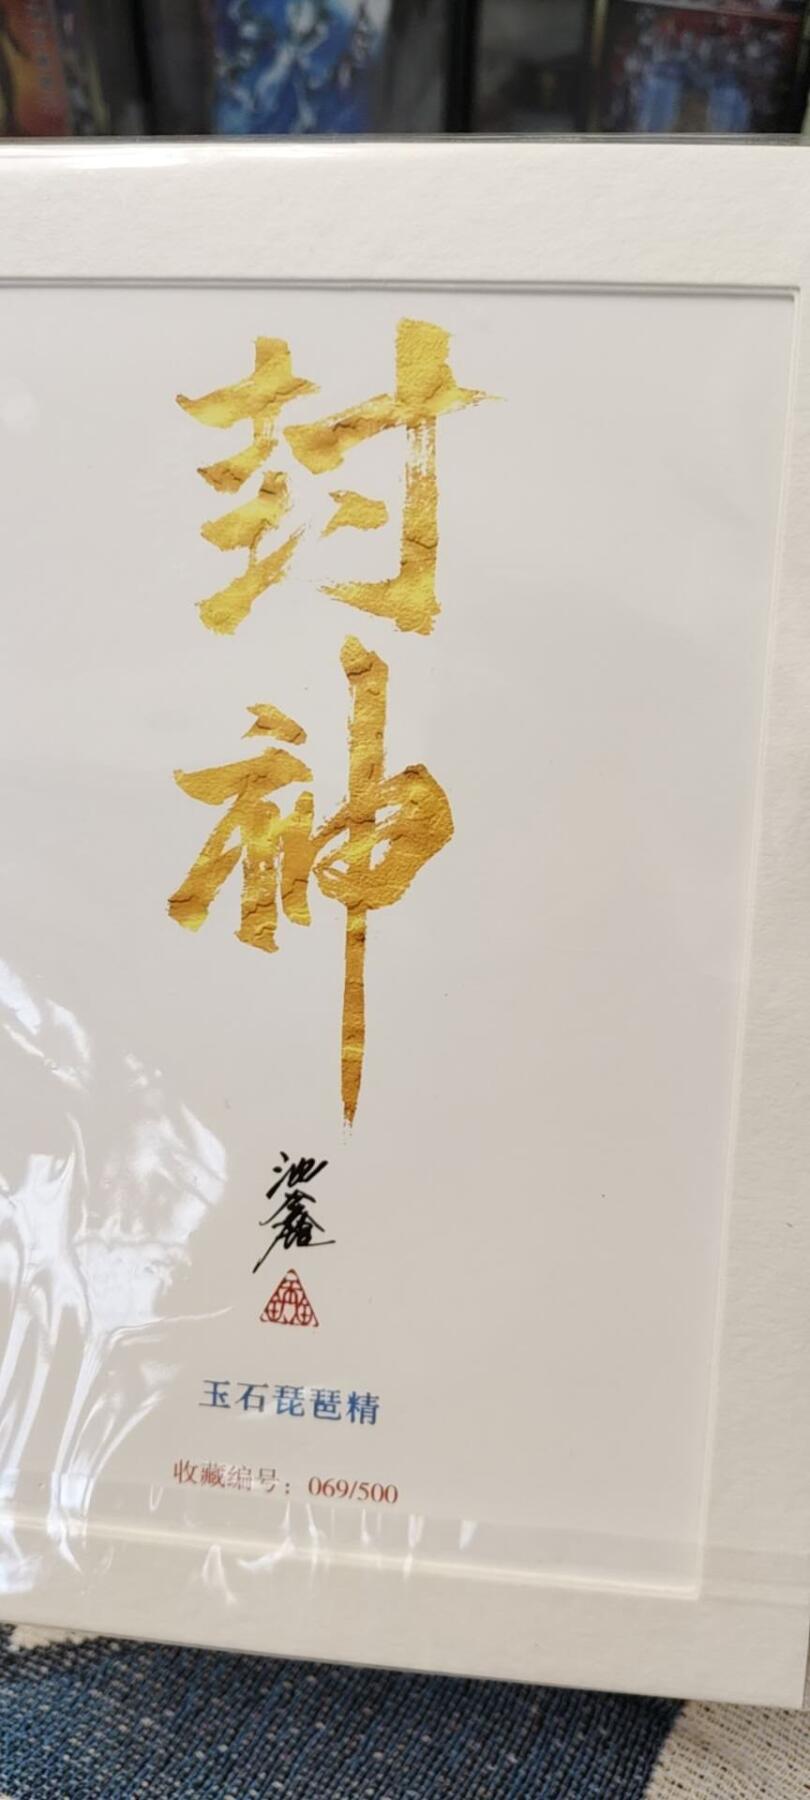 封神
池鑫
玉石琵琶精
收藏编号：069/500